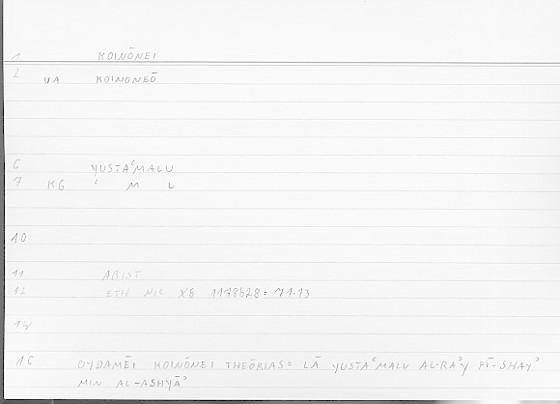 1 KOINŌNEI
2 UA KOINONEŌ
6 YUSTAʿMALU
7 KG ʿ M L
10
11 ARIST
12 ETH NIC X8 1178b28 = 71.13
14
16 OYDAMĒI KOINŌNEI THEŌRIAS = LĀ YUSTAʿMALU AL-RAʾY FĪ-SHAYʾ
MIN AL-ASHYĀʾ